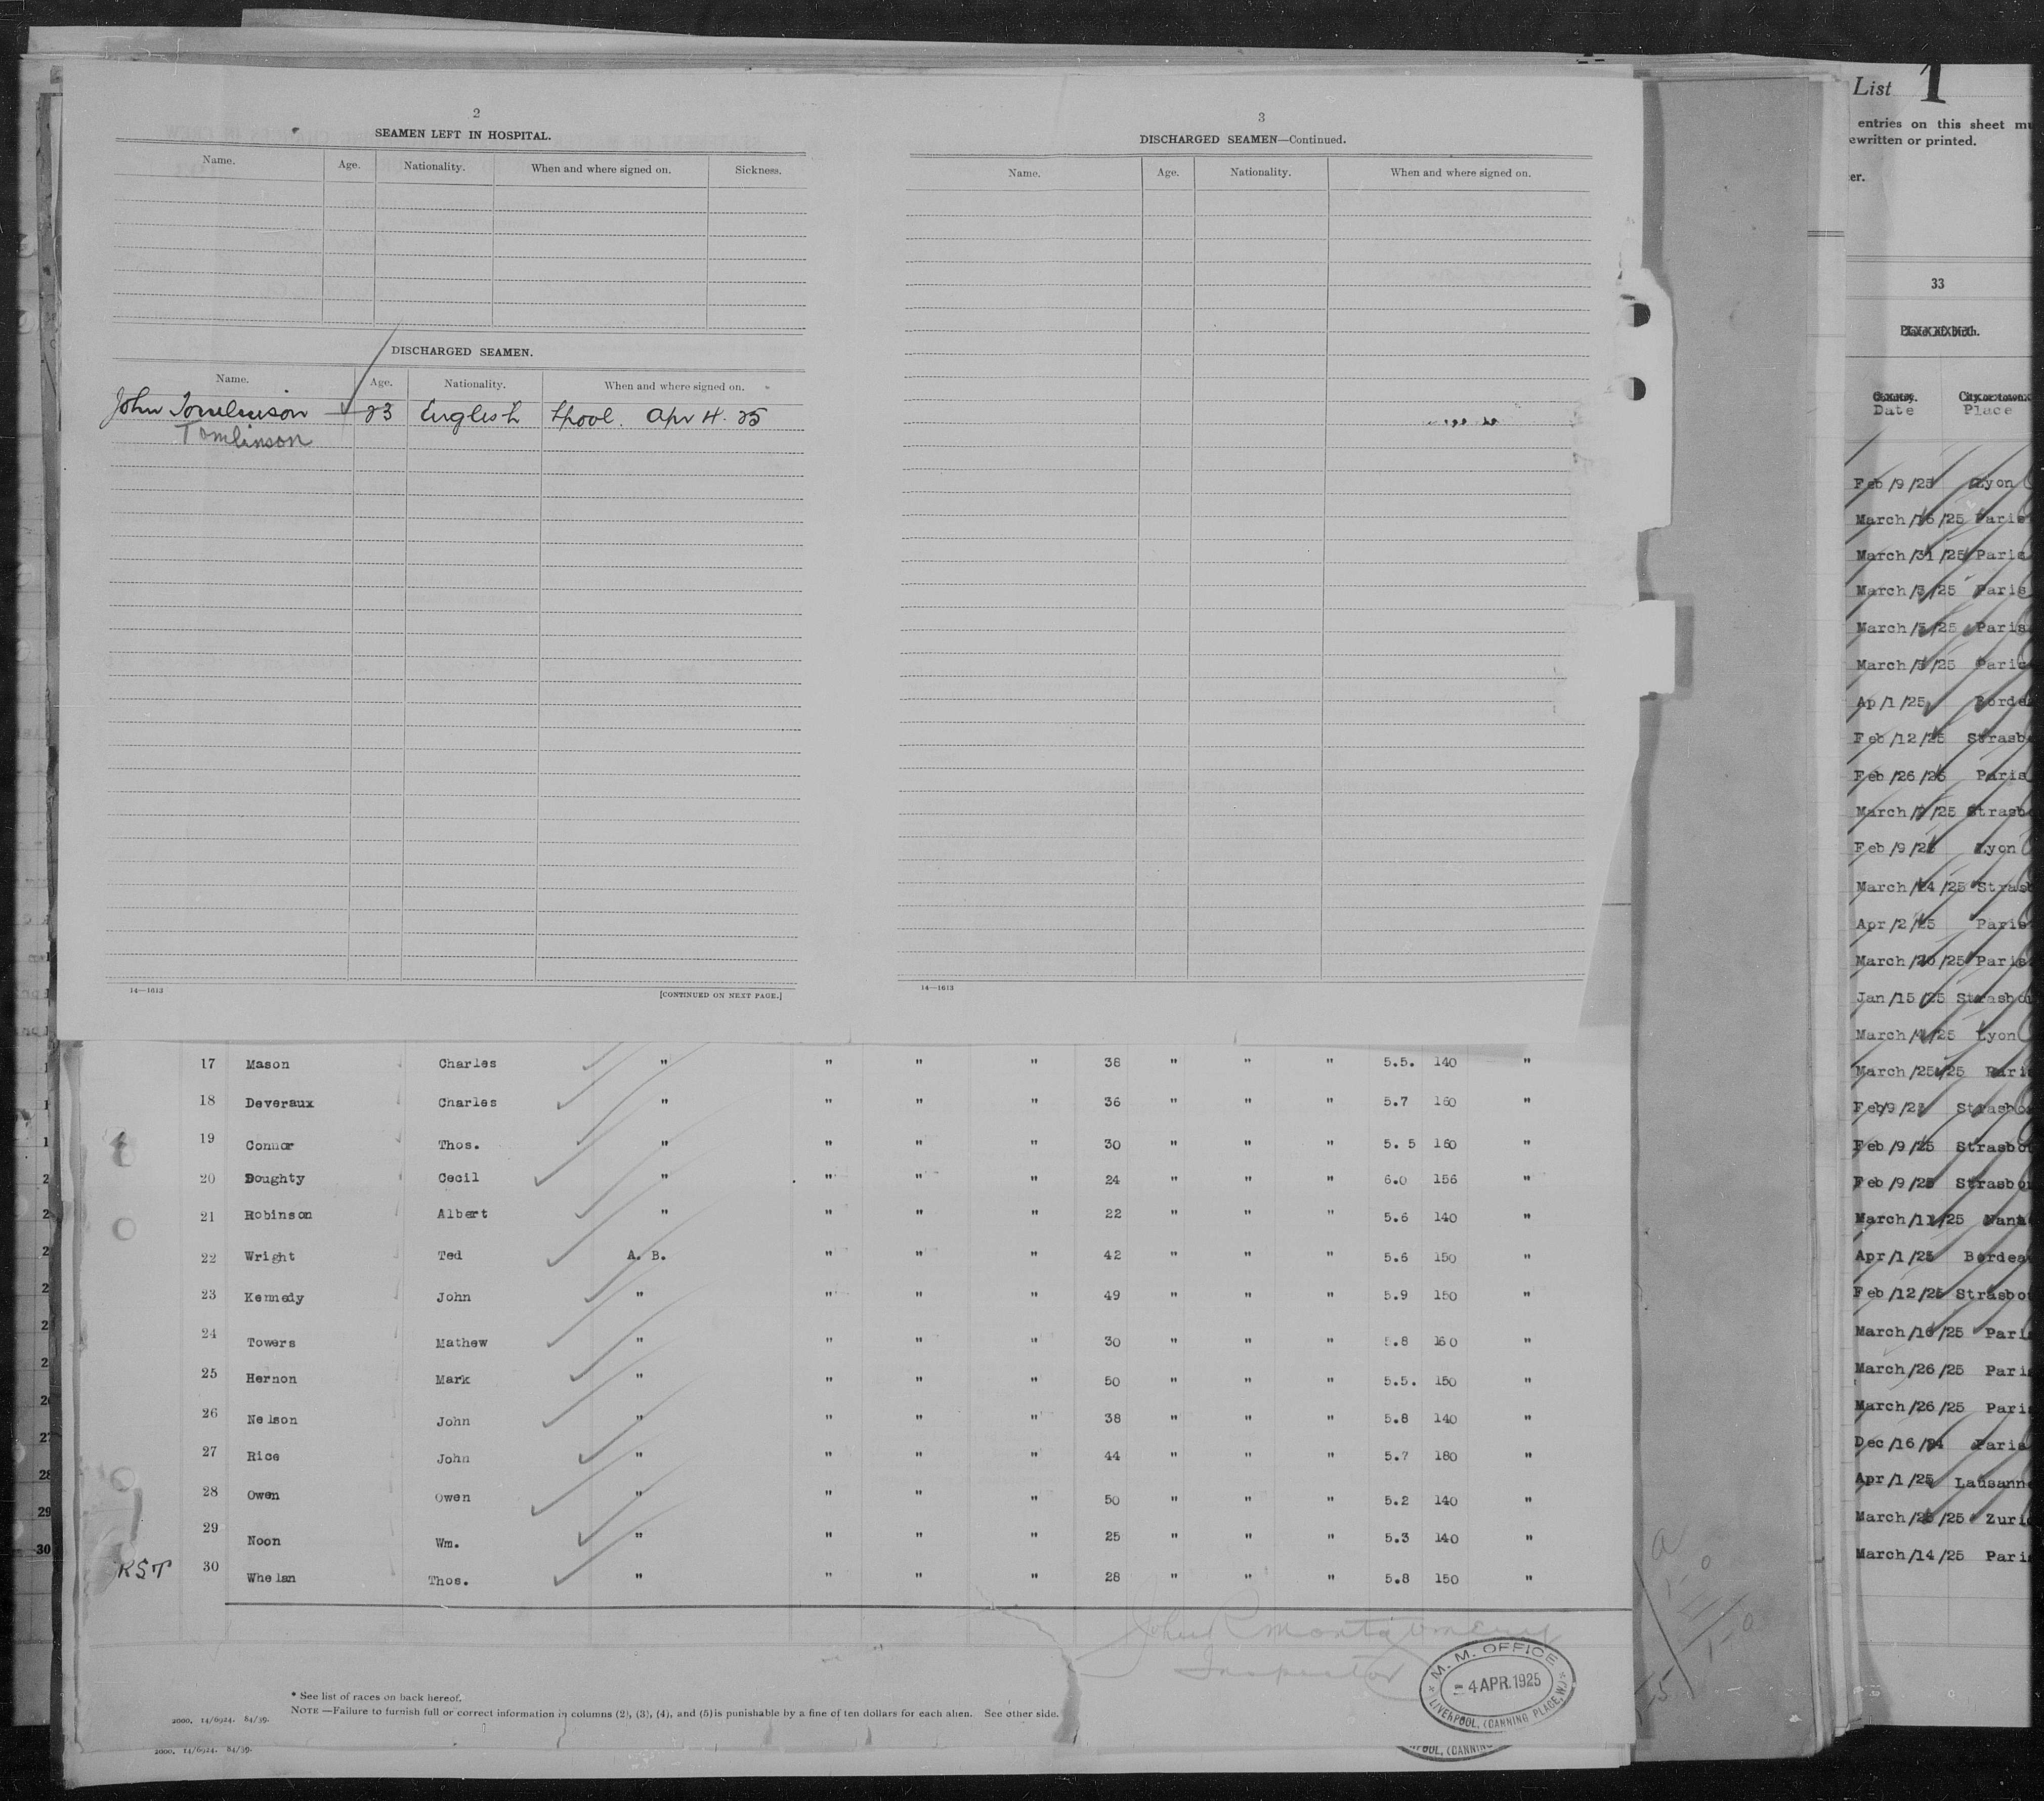 2
SEAMEN LEFT IN HOSPITAL.
Name. Age. Nationality. When and where signed on. Sickness.
DISCHARGED SEAMEN.
Name. Age. Nationality. When and where signed on.
John Tomlinson 23 English Lpool. Apr 4. 25
Tomlinson
14—1613 [CONTINUED ON NEXT PAGE.]
3
DISCHARGED SEAMEN—Continued.
Name. Age. Nationality. When and where signed on.
14—1613
17 Mason Charles " " " " 38 " " " 5.5. 140 "
18 Deveraux Charles " " " " 36 " " " 5.7 160 "
19 Connor Thos. " " " " 30 " " " 5. 5 160 "
20 Doughty Cecil " " " " 24 " " " 6.0 156 "
21 Robinson Albert " " " " 22 " " " 5.6 140 "
22 Wright Ted A. B. " " " 42 " " " 5.6 150 "
23 Kennedy John " " " " 49 " " " 5.9 150 "
24 Towers Mathew " " " " 30 " " " 5.8 160 "
25 Hernon Mark " " " " 50 " " " 5.5. 150 "
26 Nelson John " " " " 38 " " " 5.8 140 "
27 Rice John " " " " 44 " " " 5.7 180 "
28 Owen Owen " " " " 50 " " " 5.2 140 "
29 Noon Wm. " " " " 25 " " " 5.3 140 "
RST 30 Whelan Thos. " " " " 28 " " " 5.8 150 "
John R Montgomery
Inspector
M. M. OFFICE
4 APR. 1925
LIVERPOOL, (CANNING PLACE, W.)
* See list of races on back hereof.
NOTE —Failure to furnish full or correct information in columns (2), (3), (4), and (5) is punishable by a fine of ten dollars for each alien. See other side.
2000. 14/6924. 84/39.
2000. 14/6924. 84/39.
List 1
entries on this sheet
ewritten or printed.
33
Date Place
Feb/9/25 Lyon
March/16/25 Paris
March/31/25 Paris
March/3/25 Paris
March/3/25 Paris
March/3/25 Paris
Ap/1/25 Borde
Feb/12/25 Strasb
Feb/26/25 Paris
March/ /25 Strasb
Feb/9/25 Lyon
March/24/25 Strasb
Apr/2/25 Paris
March/20/25 Paris
Jan/15/25 Strasbou
March/4/25 Lyon
March/25/25 Pari
Feb/9/25 Strasbo
Feb/9/25 Strasbou
Feb/9/25 Strasbou
March/11/25 Nant
Apr/1/25 Bordea
Feb/12/25 Strasbou
March/16/25 Pari
March/26/25 Pari
March/26/25 Pari
Dec/16/24 Paris
Apr/1/25 Lausanne
March/ /25 Zuri
March/14/25 Pari